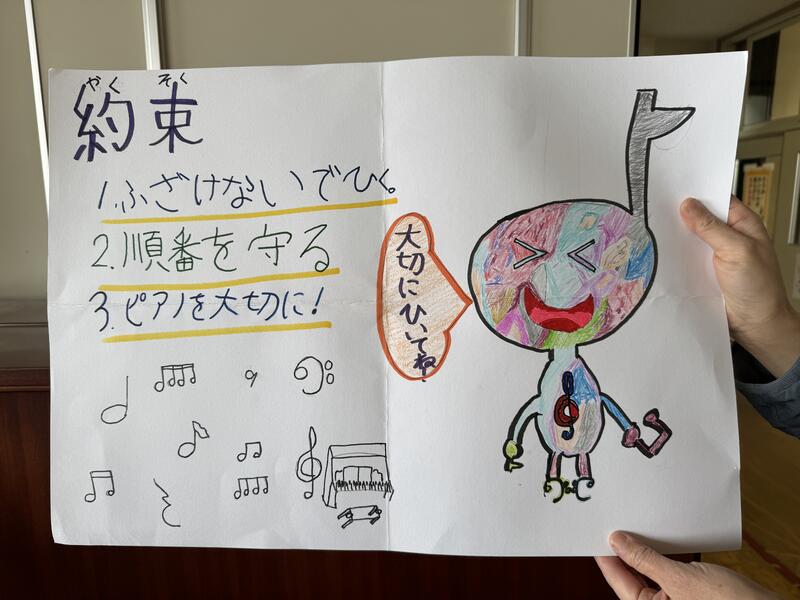 やく そく
約束
1.ふざけないでひく。
2.順番を守る
3.ピアノを大切に!
大切にひいてね!